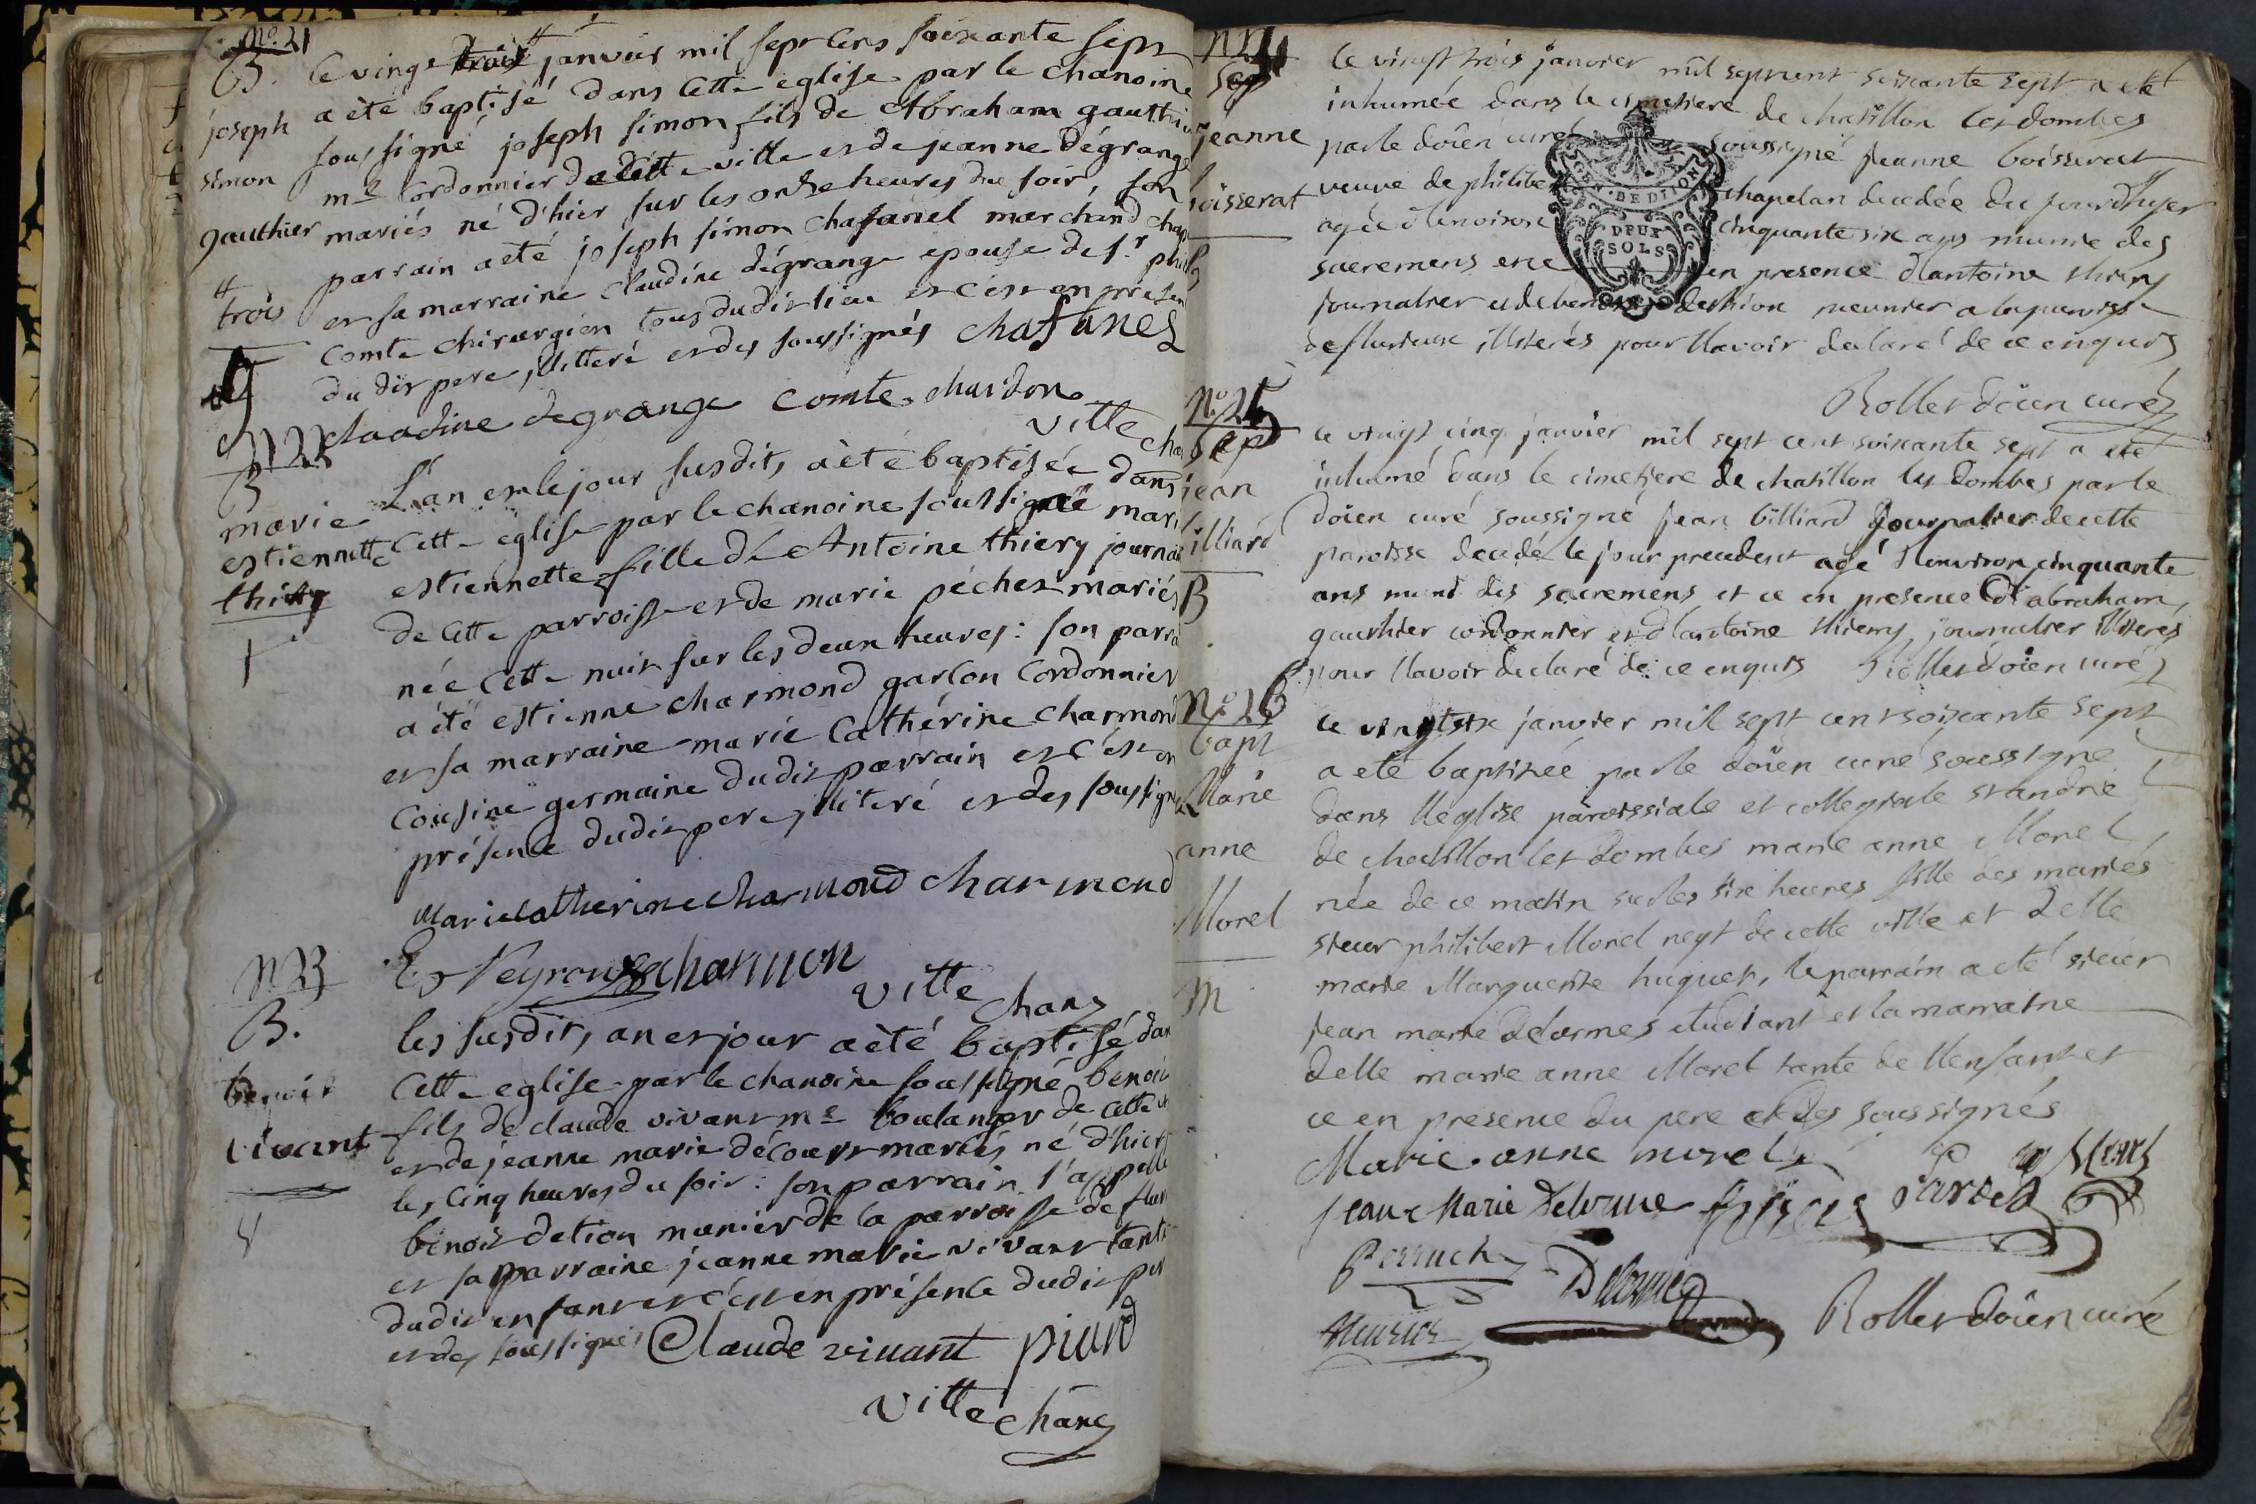 No. 21
B.
joseph
simon
gauthier
#
trois
le vingt trois # janvier mil sept cens soixante sept
a èté baptisé dans cette eglise par le chanoine
soussigné joseph simon fils de Abraham gauthier
me cordonnier de cette ville et de jeanne dégrange
mariés né d'hier sur les onze heures du soir, son
parrain a èté joseph simon chasanel marchand
et sa marraine claudine dégrange epouse de sr.
comte chirurgien tous dudit lieu et c'est en présen
du dit pere illiteré et des soussignés chasanel
claudine degrange comte chardon
ville
N 22
B
marie
estiennette
thiery
L'an et le jour susdit, a èté baptisée dans
cette eglise par le chanoine soussigné mari
estiennette fille de Antoine thiery journa
de cette parroisse et de marie péchet mariés
née cette nuit sur les deux heures : son parra
a été estienne charmond garcon cordonnier
et sa marraine marie cathérine charmond
cousine germaine dudit parrain et c'est en
présence dudit pere illiteré et des soussigné
marie catherine charmond charmond
charmon
ville chan
N 23
B.
benoit
vivant
les susdit, an et jour a èté baptisé dan
cette eglise par le chanoine soussigné benoit
fils de claude vivant me boulanger de cette
et de jeanne marie décourt mariés né d'hier
les cinq heures du soir : son parrain s'appelle
benoit detion munier de la parroisse de fluri
et sa marraine jeanne marie vivant tante
dudit enfant et c'est en présence dudit per
et des soussignés Claude vivant piard
ville chan
sep
jeanne
boisserat
le vingt trois janvier mil sept cent soixante sept a eté
inhumée dans le cimetiere de chatillon les dombes
par le doïen curé soussigné jeanne boisserat
veuve de philibe chapelan decedée du jour d'hyer
agée d'environ cinquante six ans munie des
sacremens et ce en presence d'antoine thiery
journalier et de benoit dethion meunier a la paroisse
de flurieux illiterés pour l'avoir declaré de ce enquis
Rollet doïen curé
No. 25
sep
jean
billiard
le vingt cinq janvier mil sept cent soixante sept a eté
inhumé dans le cimetiere de chatillon les dombes par le
doïen curé soussigné jean billiard journalier de cette
paroisse decedé le jour precedent agé d'environ cinquante
ans muni des sacremens et ce en presence d'abraham
gauthier cordonnier et d'antoine thiery journalier illiteres
pour l'avoir declaré de ce enquis Rollet doïen curé
No. 26
bapt
Marie
anne
Morel
le vingt six janvier mil sept cent soixante sept
a eté baptisée par le doïen curé soussigné
dans l'église paroissiale et collegiale st andré
de chatillon les dombes marie anne Morel
née de ce matin sur les six heures fille des mariés
sieur philibert Morel negt de cette ville et delle
marie Marguerite huguet, le parrain a eté sieur
jean marie Delormes etudiant et la marraine
delle marie anne Morel tante de l'enfant et
ce en presence du pere et des soussignés
Marie anne morel
jean Marie Delorme
Perruch Delorme
Rollet doïen curé
DEUX
SOLS